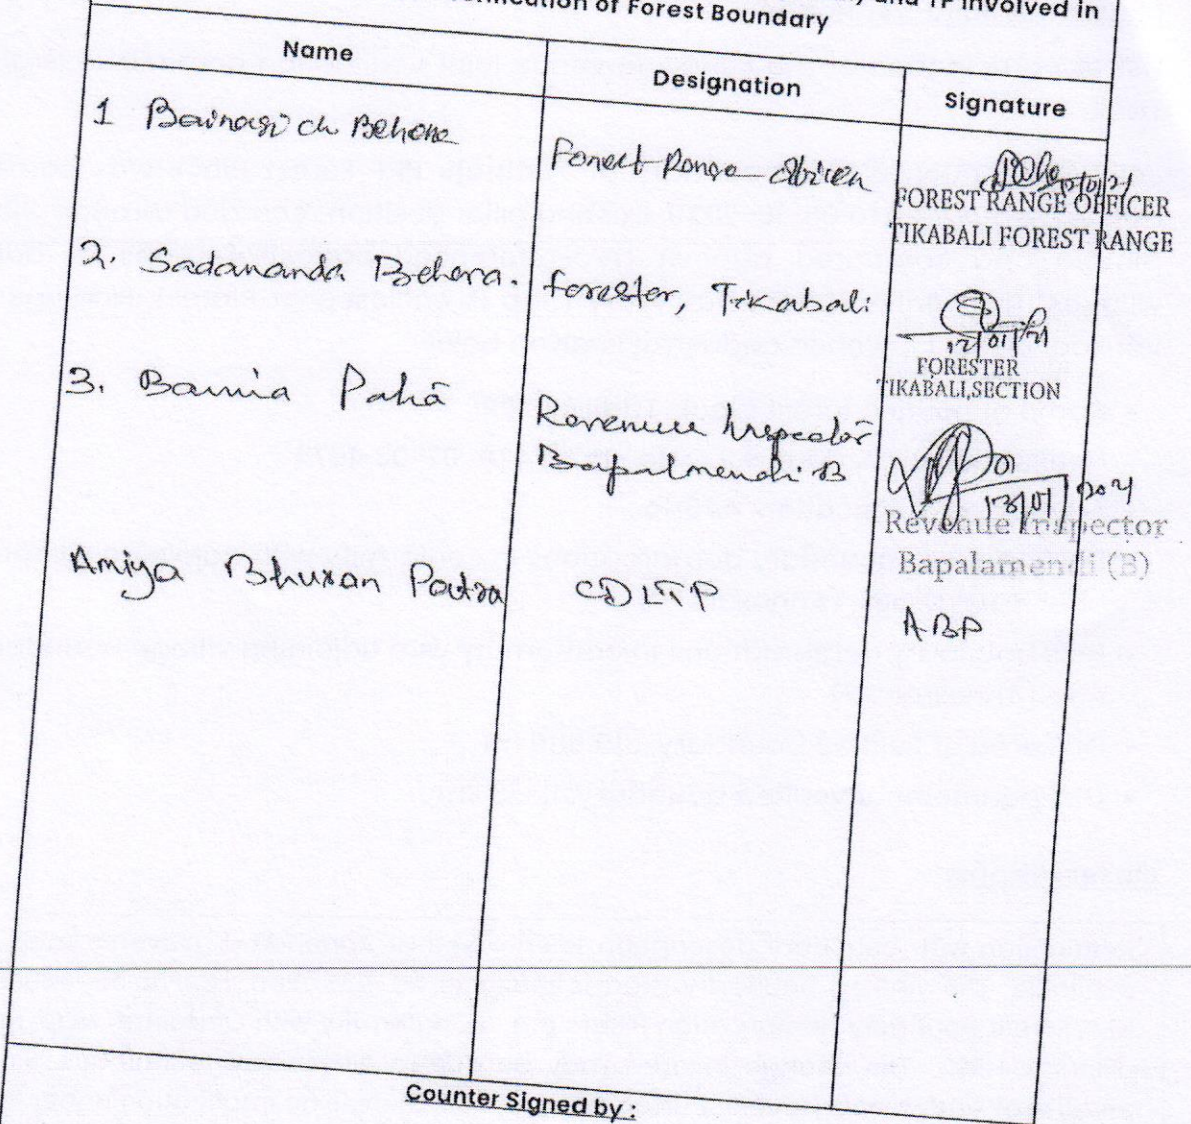 and TP involved in
of Forest Boundary
Name
Designation
Signature
1 Bainasi ch Behera
Forest Range Officer
12/01/21
FOREST RANGE OFFICER
TIKABALI FOREST RANGE
2. Sadananda Behera.
forester, Tikabali
12/01/21
FORESTER
TIKABALI,SECTION
3. Bamia
Revenue Inspector
Bapalmendi B
13/01/2021
Revenue Inspector
Bapalamendi (B)
Amiya Bhusan Patra
CDLTP
ABP
Counter Signed by :